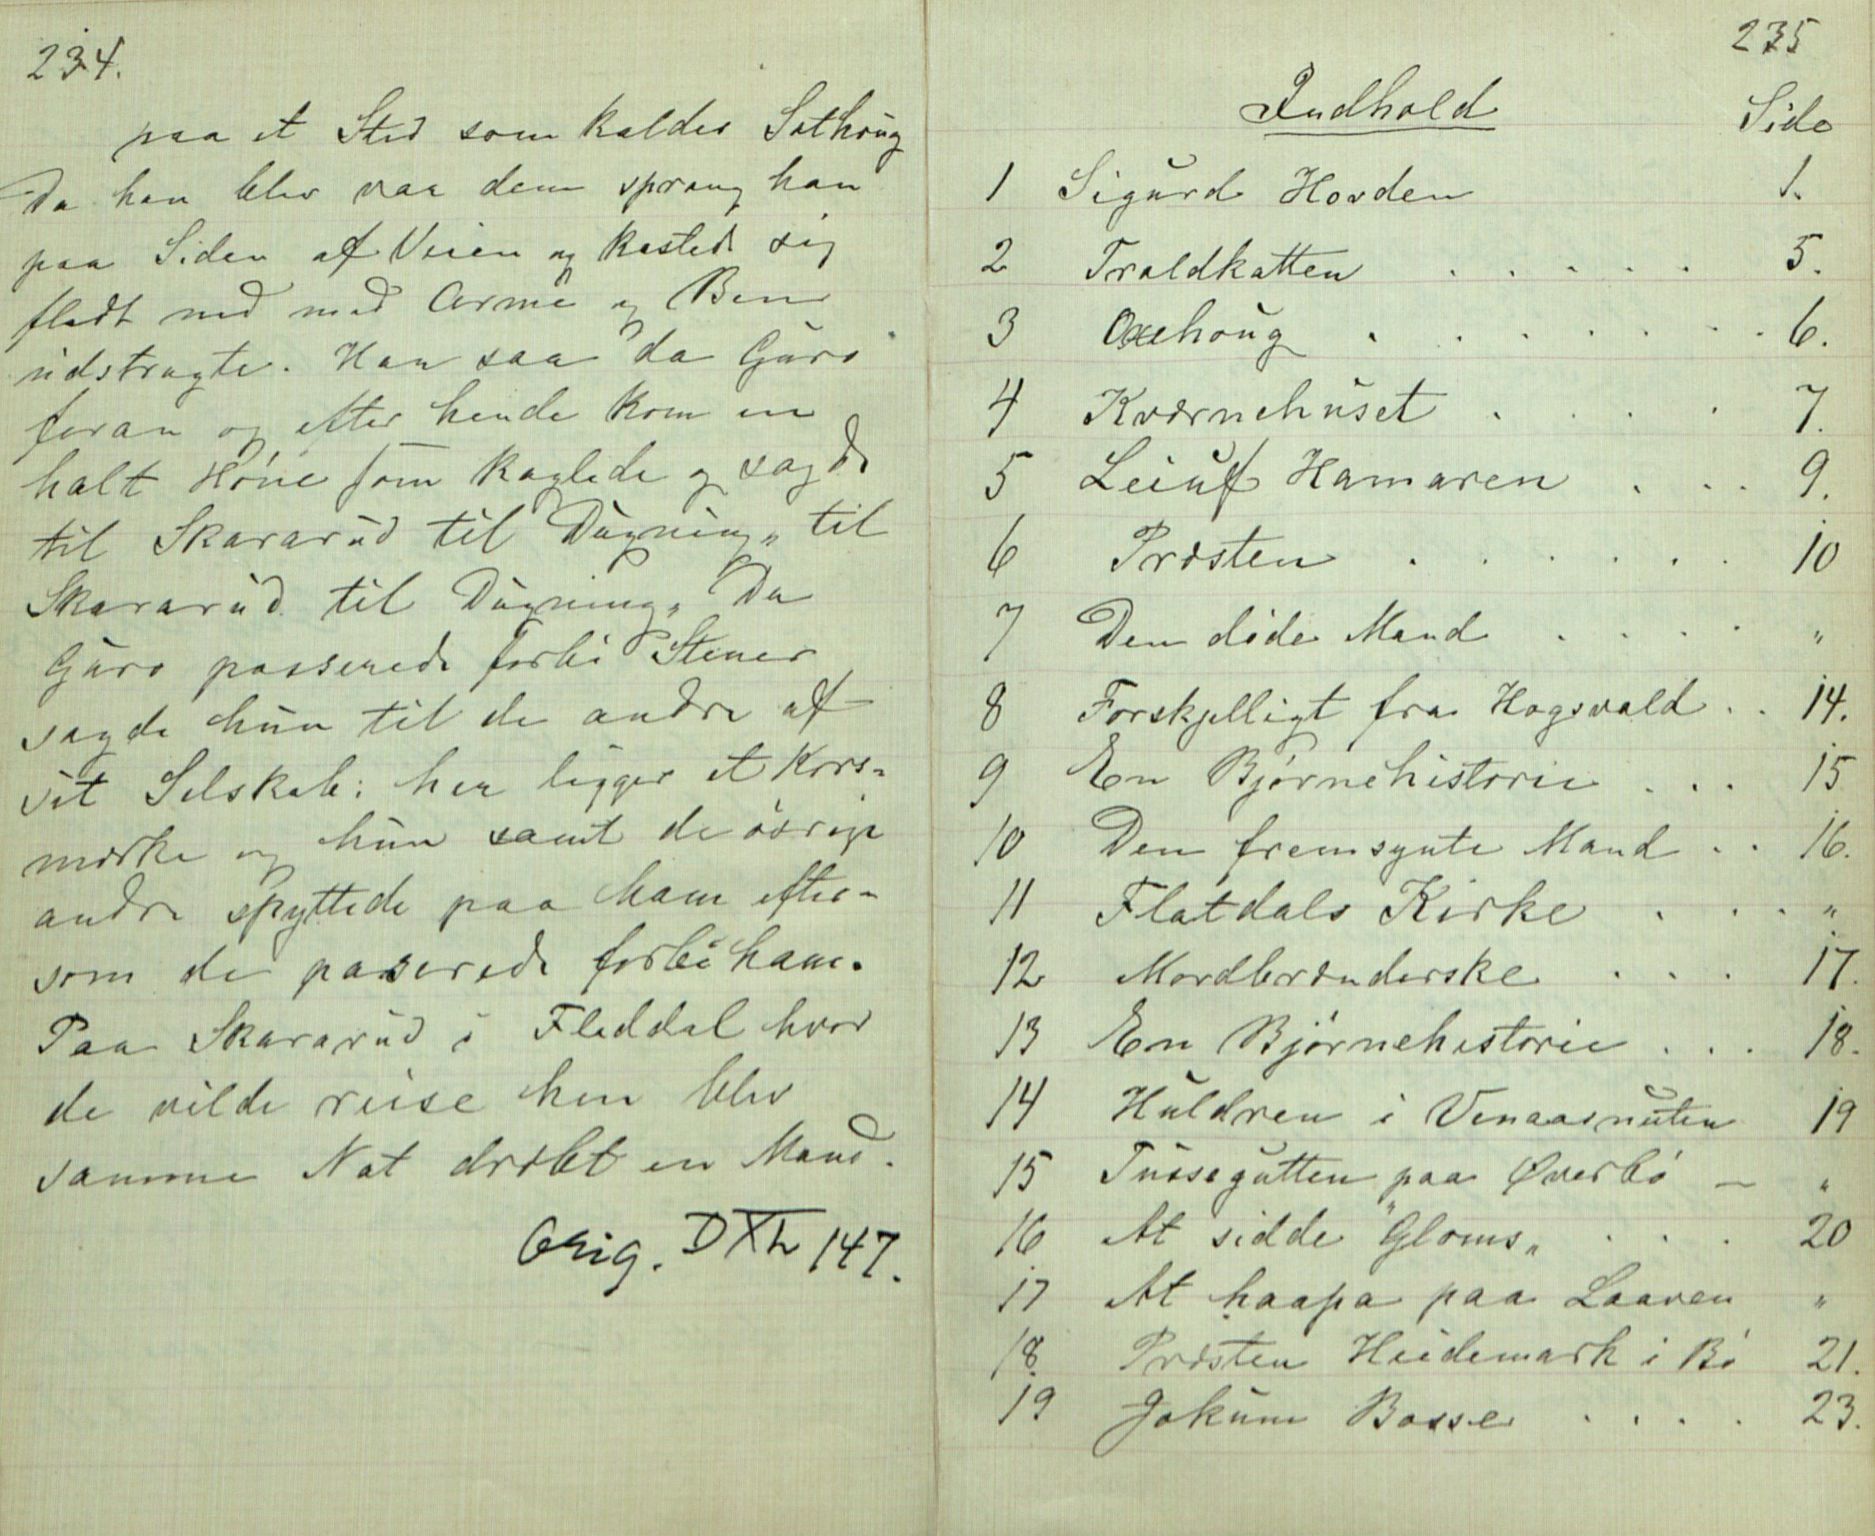 234.
paa et Sted som kaldes Sathoug
Da han blev vaa dem sprang han
paa Siden af Veien og kasted sig
fladt ned med Arme og Ben
udstragte. Han saa da Guro
foran og efter hende kom en
halt Høne som kaglede og sagde
til Skararud til Dugning„ til
Skararud til Dugning„ Da
Guro passerede forbi Stener
sagde hun til de andre af
sit Selskab: her ligger et Kors-
merke og hun samt de øvrige
andre spyttede paa ham efter-
som de paserede forbi ham.
Paa Skararud i Fladdal hvor
de vilde reise hen blev
samme Nat dræbt en Mand.
Orig. D XI 147.
235
Indhold
Side
1 Sigurd Hovden 1.
2 Troldkatten . . . . . 5.
3 Oxehoug . . . . . . . 6.
4 Kværnehuset . . . . 7.
5 Leiuf Hamaren . . . 9.
6 Præsten . . . . . . 10
7 Den døde Mand . . . . "
8 Forskjelligt fra Hogsvald . . 14.
9 En Bjørnehistorie . . . 15
10 Den fremsynte Mand . . 16.
11 Flatdals Kirke . . . "
12 Mordbrænderske . . . 17.
13 En Bjørnehistorie . . . 18.
14 Huldren i Venaasnuten 19
15 Tussegutten paa Øverbø — "
16 At sidde "Gloms„ . . . 20
17 At haapa paa Laaven "
18. Præsten Heidemark i Bø 21.
19 Jokum Bosse . . . . 23.